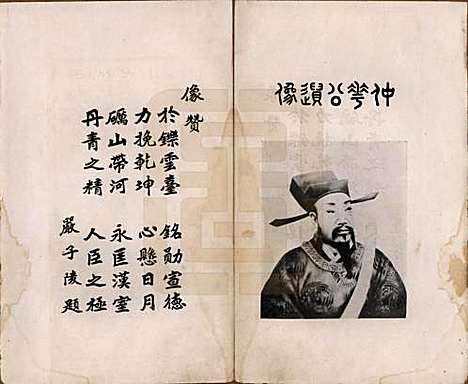 仲華公遺像
像贊
於鑠雲臺 銘勛宣德
力挽乾坤 心懸日月
礪山帶河 永匡漢室
丹青之精 人臣之極
嚴子陵題